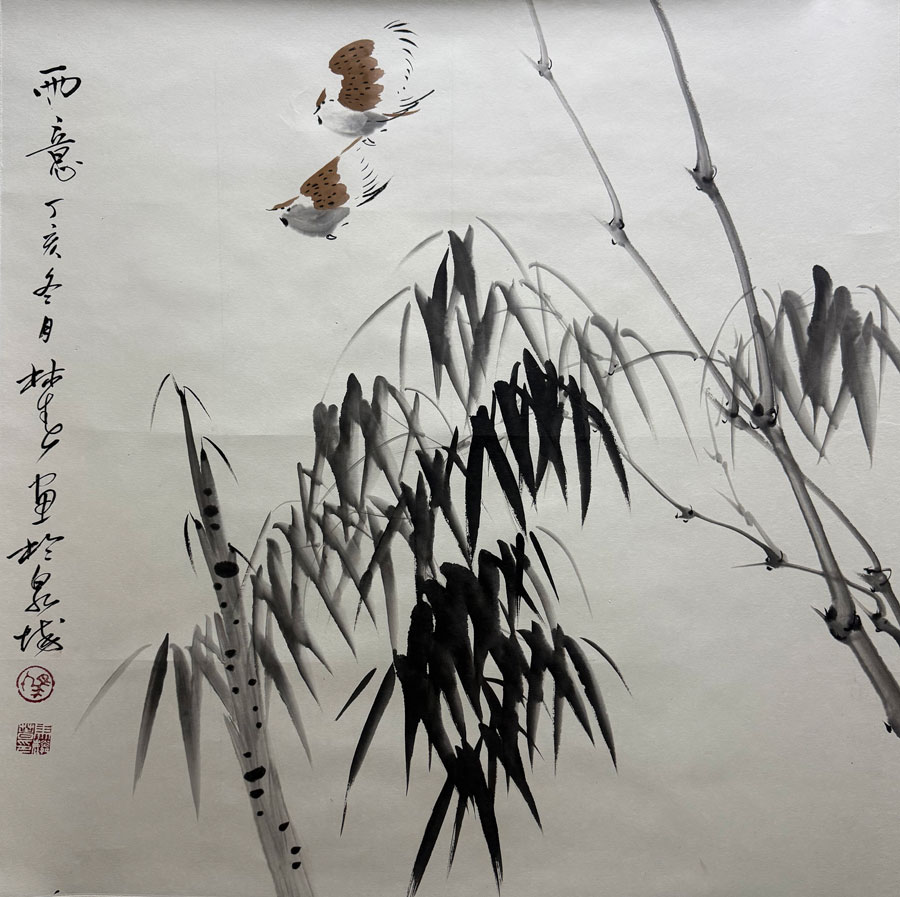 雨意 丁亥冬月 楚人画於泉城